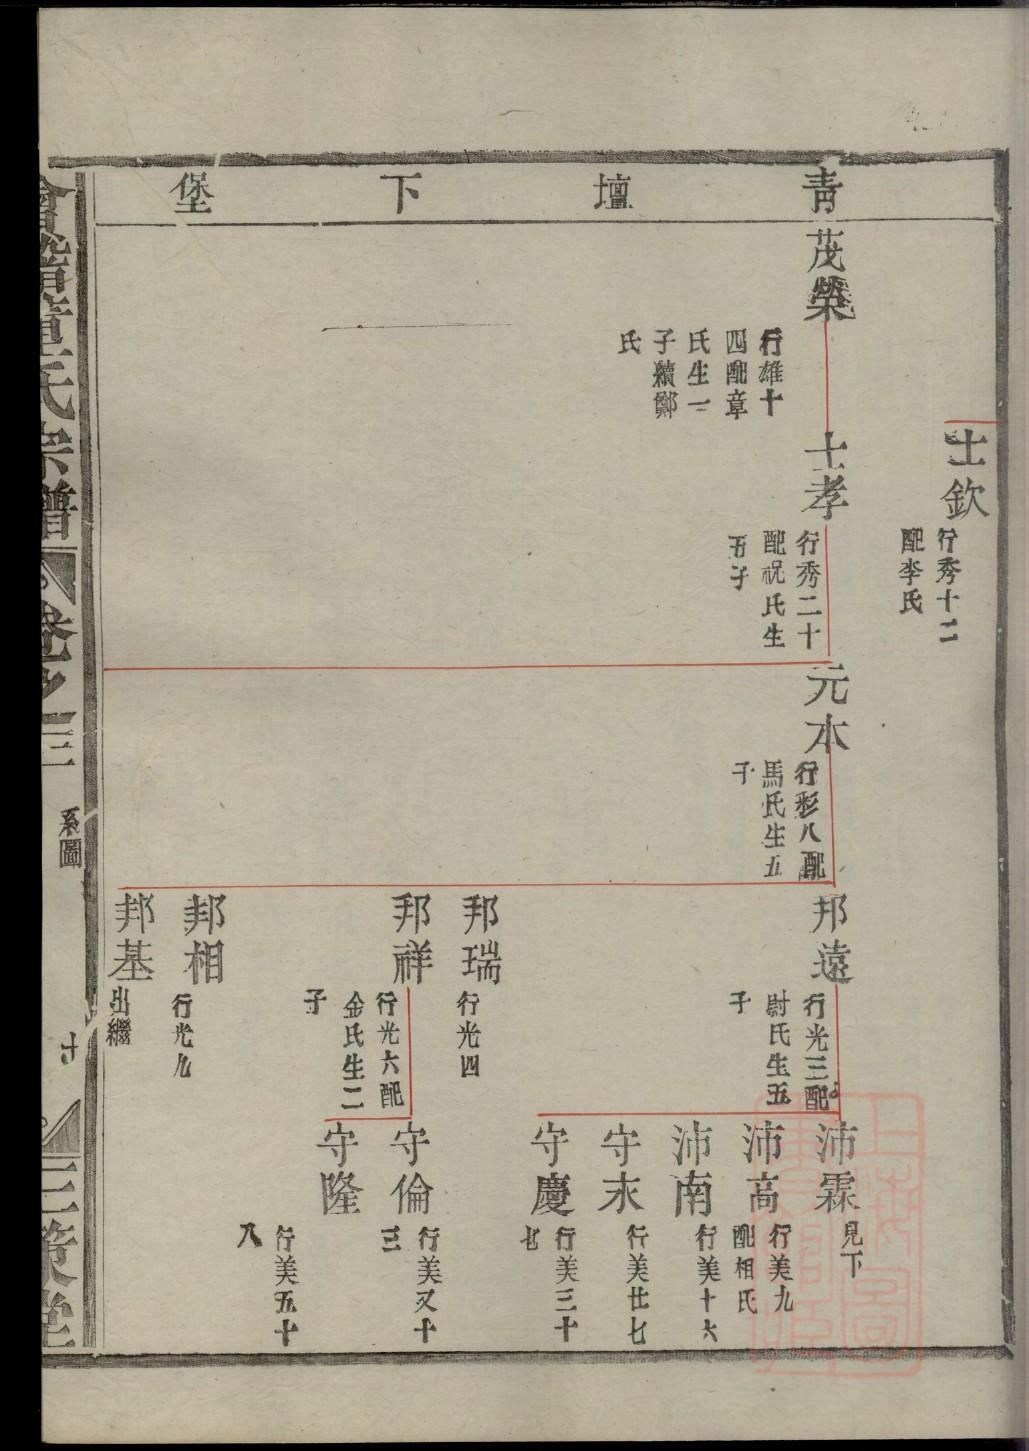 青壇下堡
士欽
行秀十二
配李氏
茂榮
行雄十
四配章
氏生一
子續鄭
氏
士孝
行秀二十
配祝氏生
五子
元本
行彩八配
馬氏生五
子
邦遠
行光三配
尉氏生五
子
沛霖
見下
沛高
行美九
配相氏
沛南
行美十六
守末
行美廿七
守慶
行美三十
七
邦瑞
行光四
邦祥
行光六配
金氏生二
子
守倫
行美又十
三
守隆
行美五十
八
邦相
行光九
邦基
出繼
會稽董氏宗譜
卷之三
系圖
三策堂